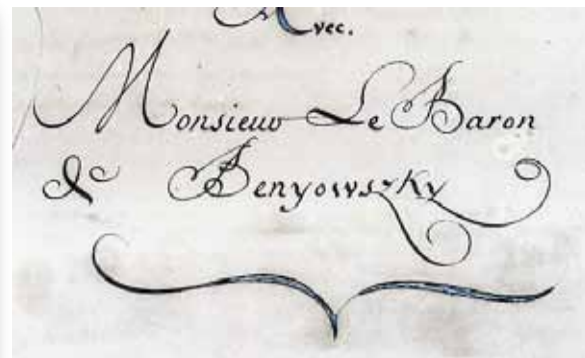 Avec.
Monsieur Le Baron
de Benyowszky